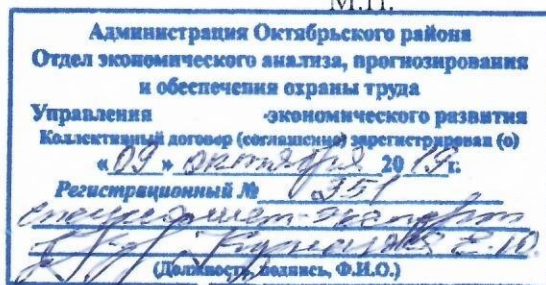 М.П.
Администрация Октябрьского района
Отдел экономического анализа, прогнозирования
и обеспечения охраны труда
Управления -экономического развития
Коллективный договор (соглашение) зарегистрирован (о)
« 09 » октября 20 19 г.
Регистрационный № 351
специалист-эксперт
Е.Ю.
(Должность, подпись, Ф.И.О.)